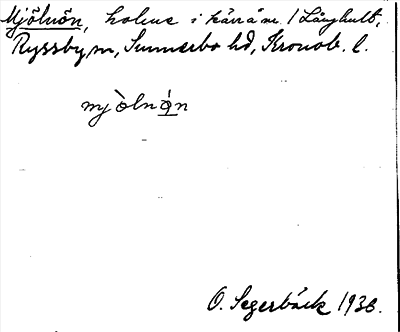 Mjölnön, holme i kärräm. / Långhult,
Ryssby sn, Sunnerbo hd, Kronob. l.
mjòlnǫ́n
O. Segerbäck 1936.